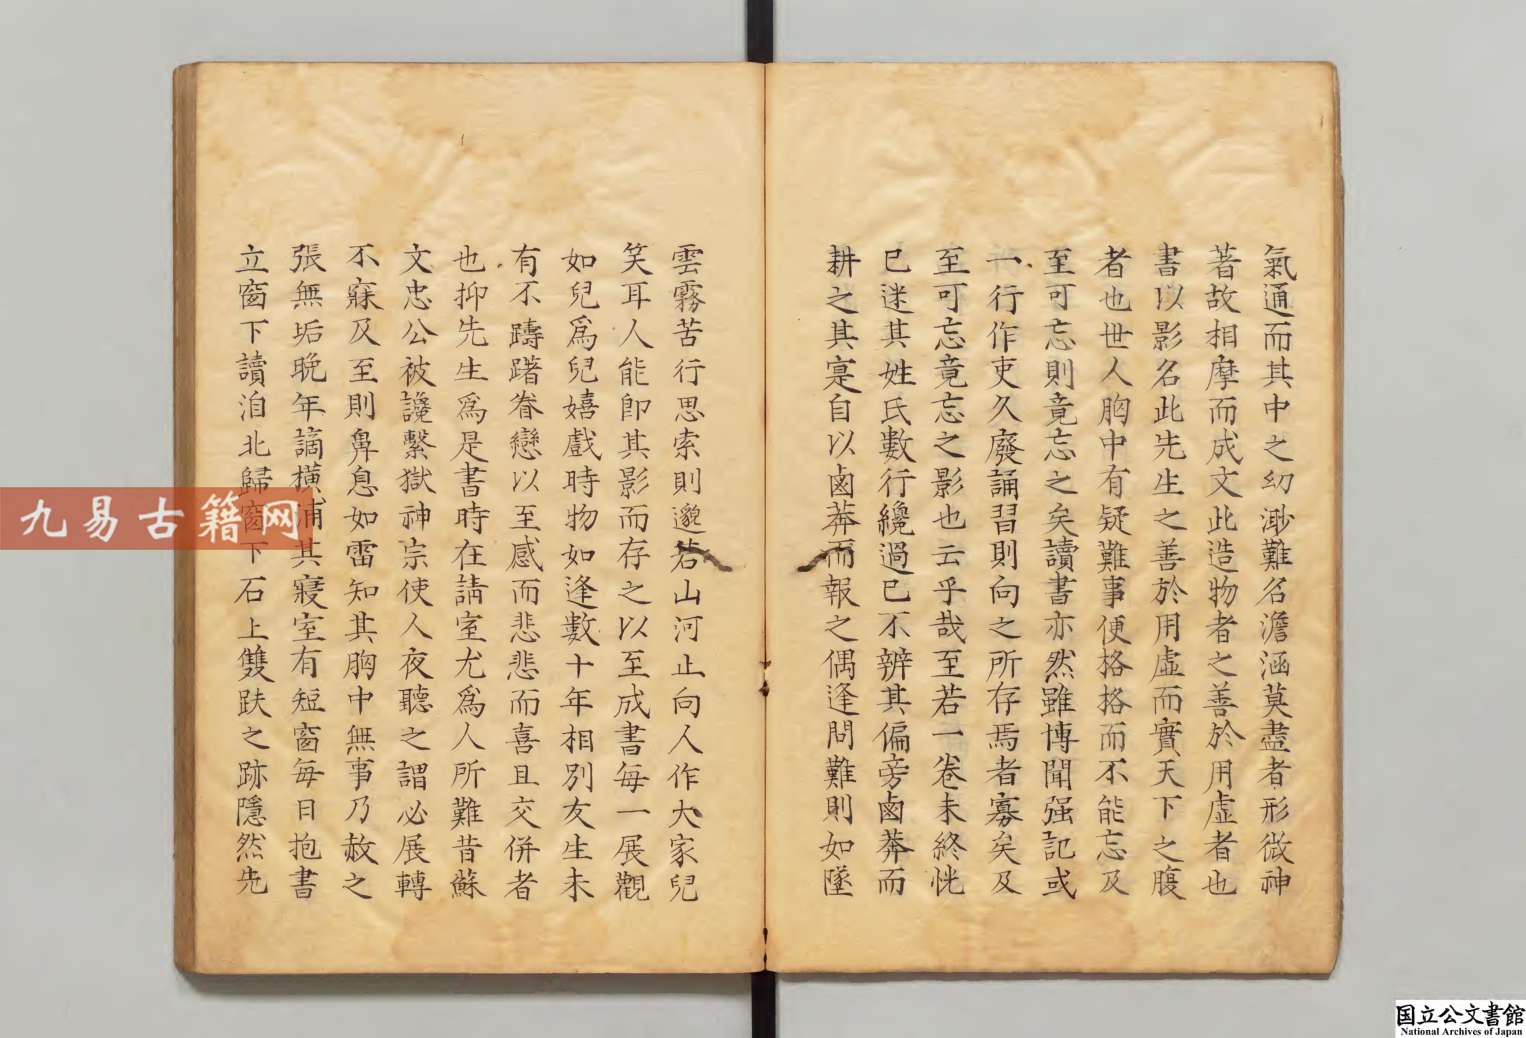 氣通而其中之幻渺難名澹涵莫盡者形微神
著故相摩而成文此造物者之善於用虛者也
書以影名此先生之善於用虛而實天下之腹
者也世人胸中有疑難事便格格而不能忘及
至可忘則竟忘之矣讀書亦然雖博聞强記或
一行作吏久廢誦習則向之所存焉者寡矣及
至可忘竟忘之影也云乎哉至若一卷未終恍
已迷其姓氏數行纔過已不辨其偏旁鹵莽而
耕之其寔自以鹵莽而報之偶逢問難則如墜
雲霧苦行思索則邈若山河止向人作大家兒
笑耳人能卽其影而存之以至成書每一展觀
如兒爲兒嬉戲時物如逢數十年相別友生未
有不躊躇眷戀以至感而悲悲而喜且交併者
也抑先生爲是書時在請室尤爲人所難昔蘇
文忠公被讒繫獄神宗使人夜聽之謂必展轉
不寐及至則鼻息如雷知其胸中無事乃赦之
張無垢晩年謫橫浦其寢室有短窗每日抱書
立窗下讀洎北歸窗下石上雙趺之跡隱然先
九易古籍网
国立公文書館
National Archives of Japan